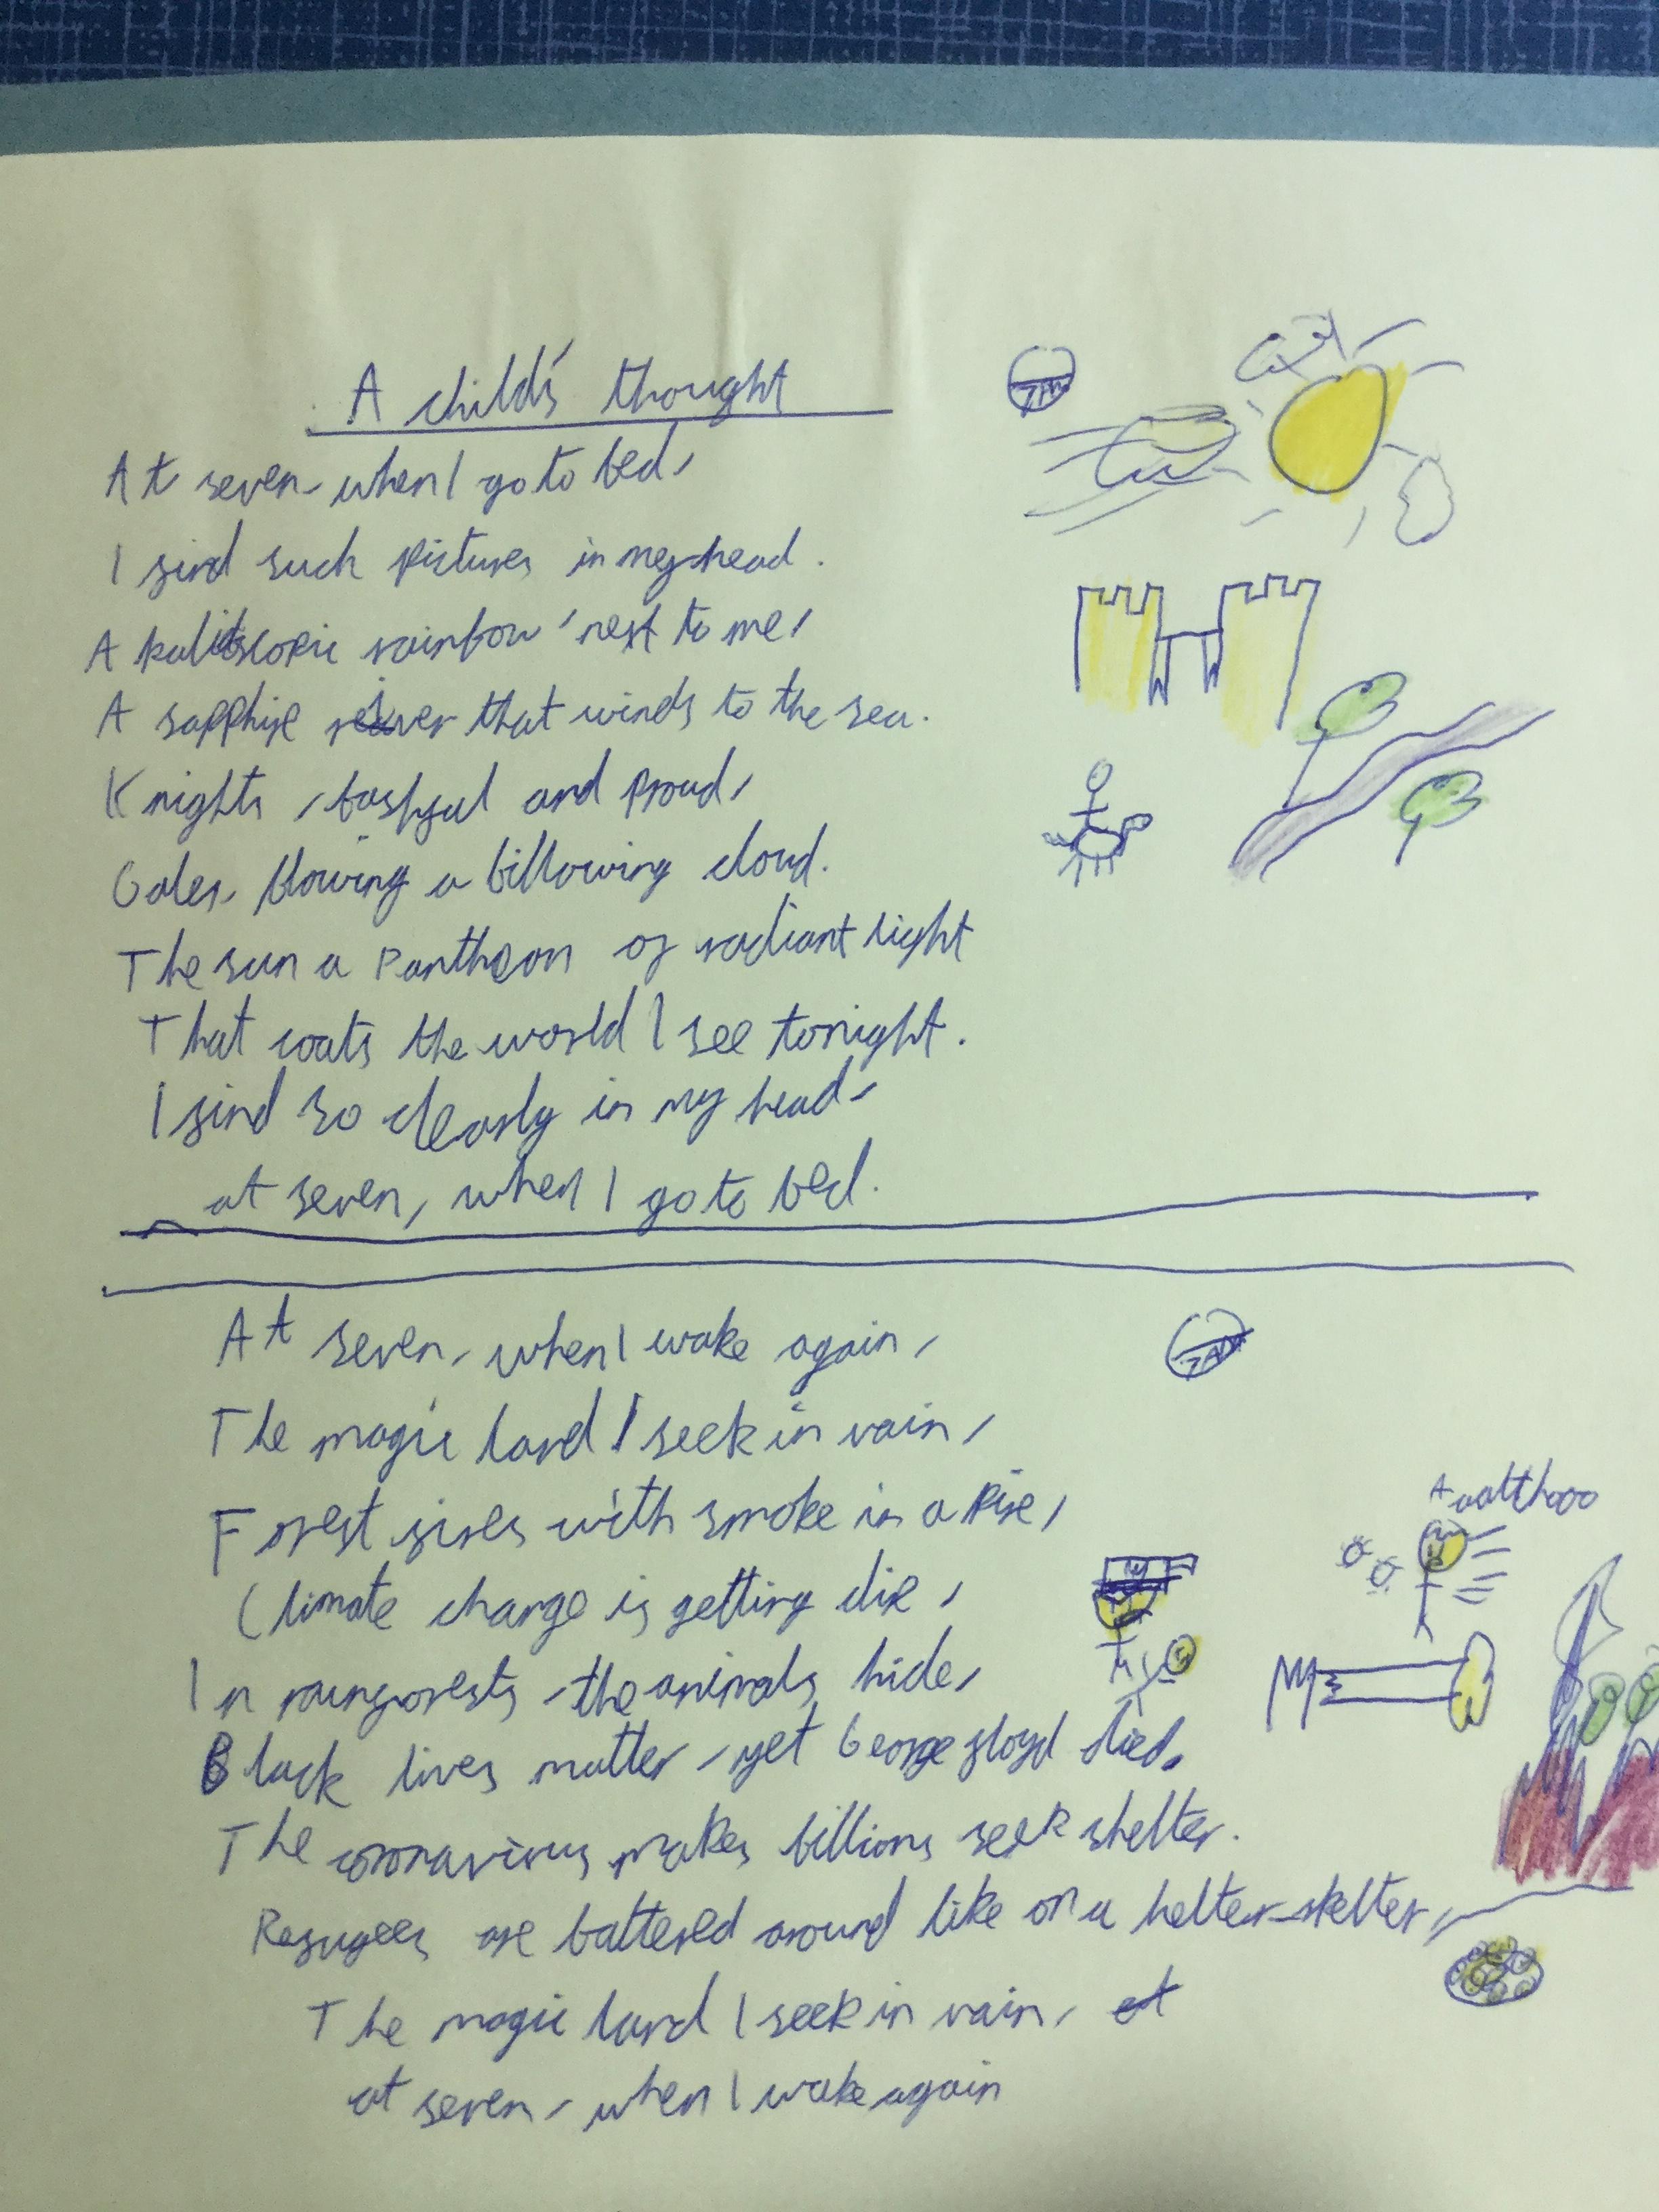 A child's thought
7PM
At seven, when I go to bed,
I find such pictures in my head.
A kalidscopic rainbow nest to me,
A sapphire river that winds to the sea.
Knights, bashful and proud,
Gales, blowing a billowing cloud.
The sun a Pantheon of radiant light
That coats the world I see tonight.
I find so clearly in my head,
at seven, when I go to bed.
At seven, when I wake again,
7AM
The magic land I seek in vain,
Forest fires with smoke in a pire,
Climate change is getting dire,
In rainforests, the animals hide,
Black lives matter, yet George floyd died.
The coronavirus makes billions seek shelter.
Refugees are battered around like on a helter-skelter,
The magic land I seek in vain,
at seven, when I wake again